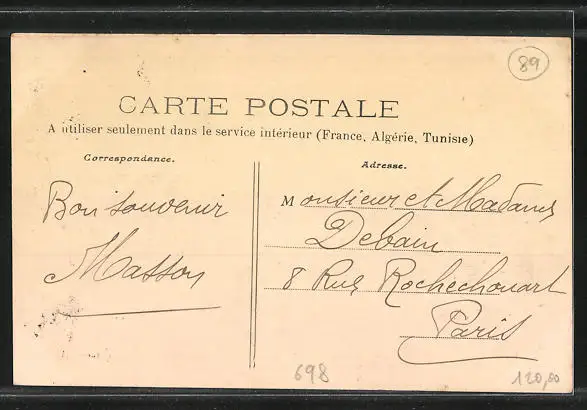 89
CARTE POSTALE
A utiliser seulement dans le service intérieur (France, Algérie, Tunisie)
Correspondance.
Adresse.
Bon souvenir
Masson
Monsieur et Madame
Debain
8 Rue Rochechouart
Paris
698
120,00